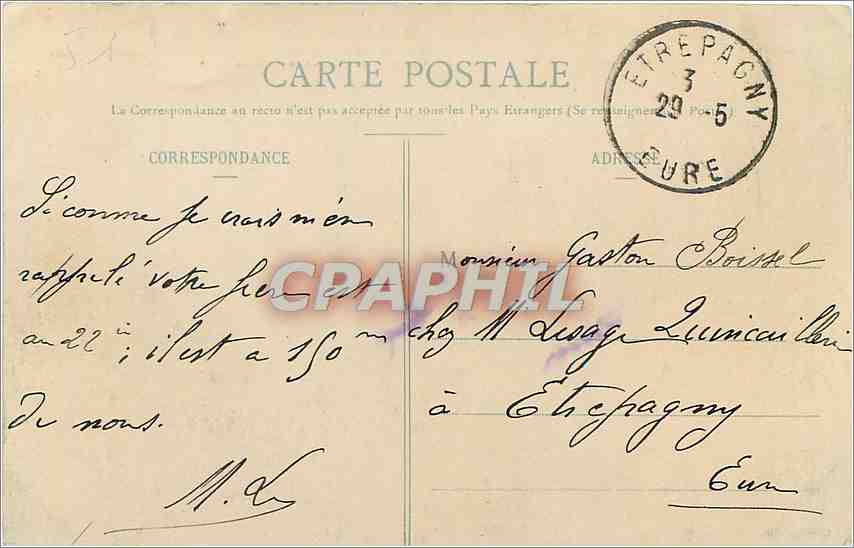 CARTE POSTALE
La Correspondance au recto n'est pas acceptée par tous les Pays Etrangers (Se renseigner à la Poste)
ETREPAGNY
3
29 -5
EURE
CORRESPONDANCE
Si comme je crois m'en
rappelé votre frère est
au 22e; il est a 150 m
de nous.
ADRESSE
Monsieur Gaston Boissel
chez M Lesage Quincaillerie
à Etrepagny
Eure
CPAPHIL